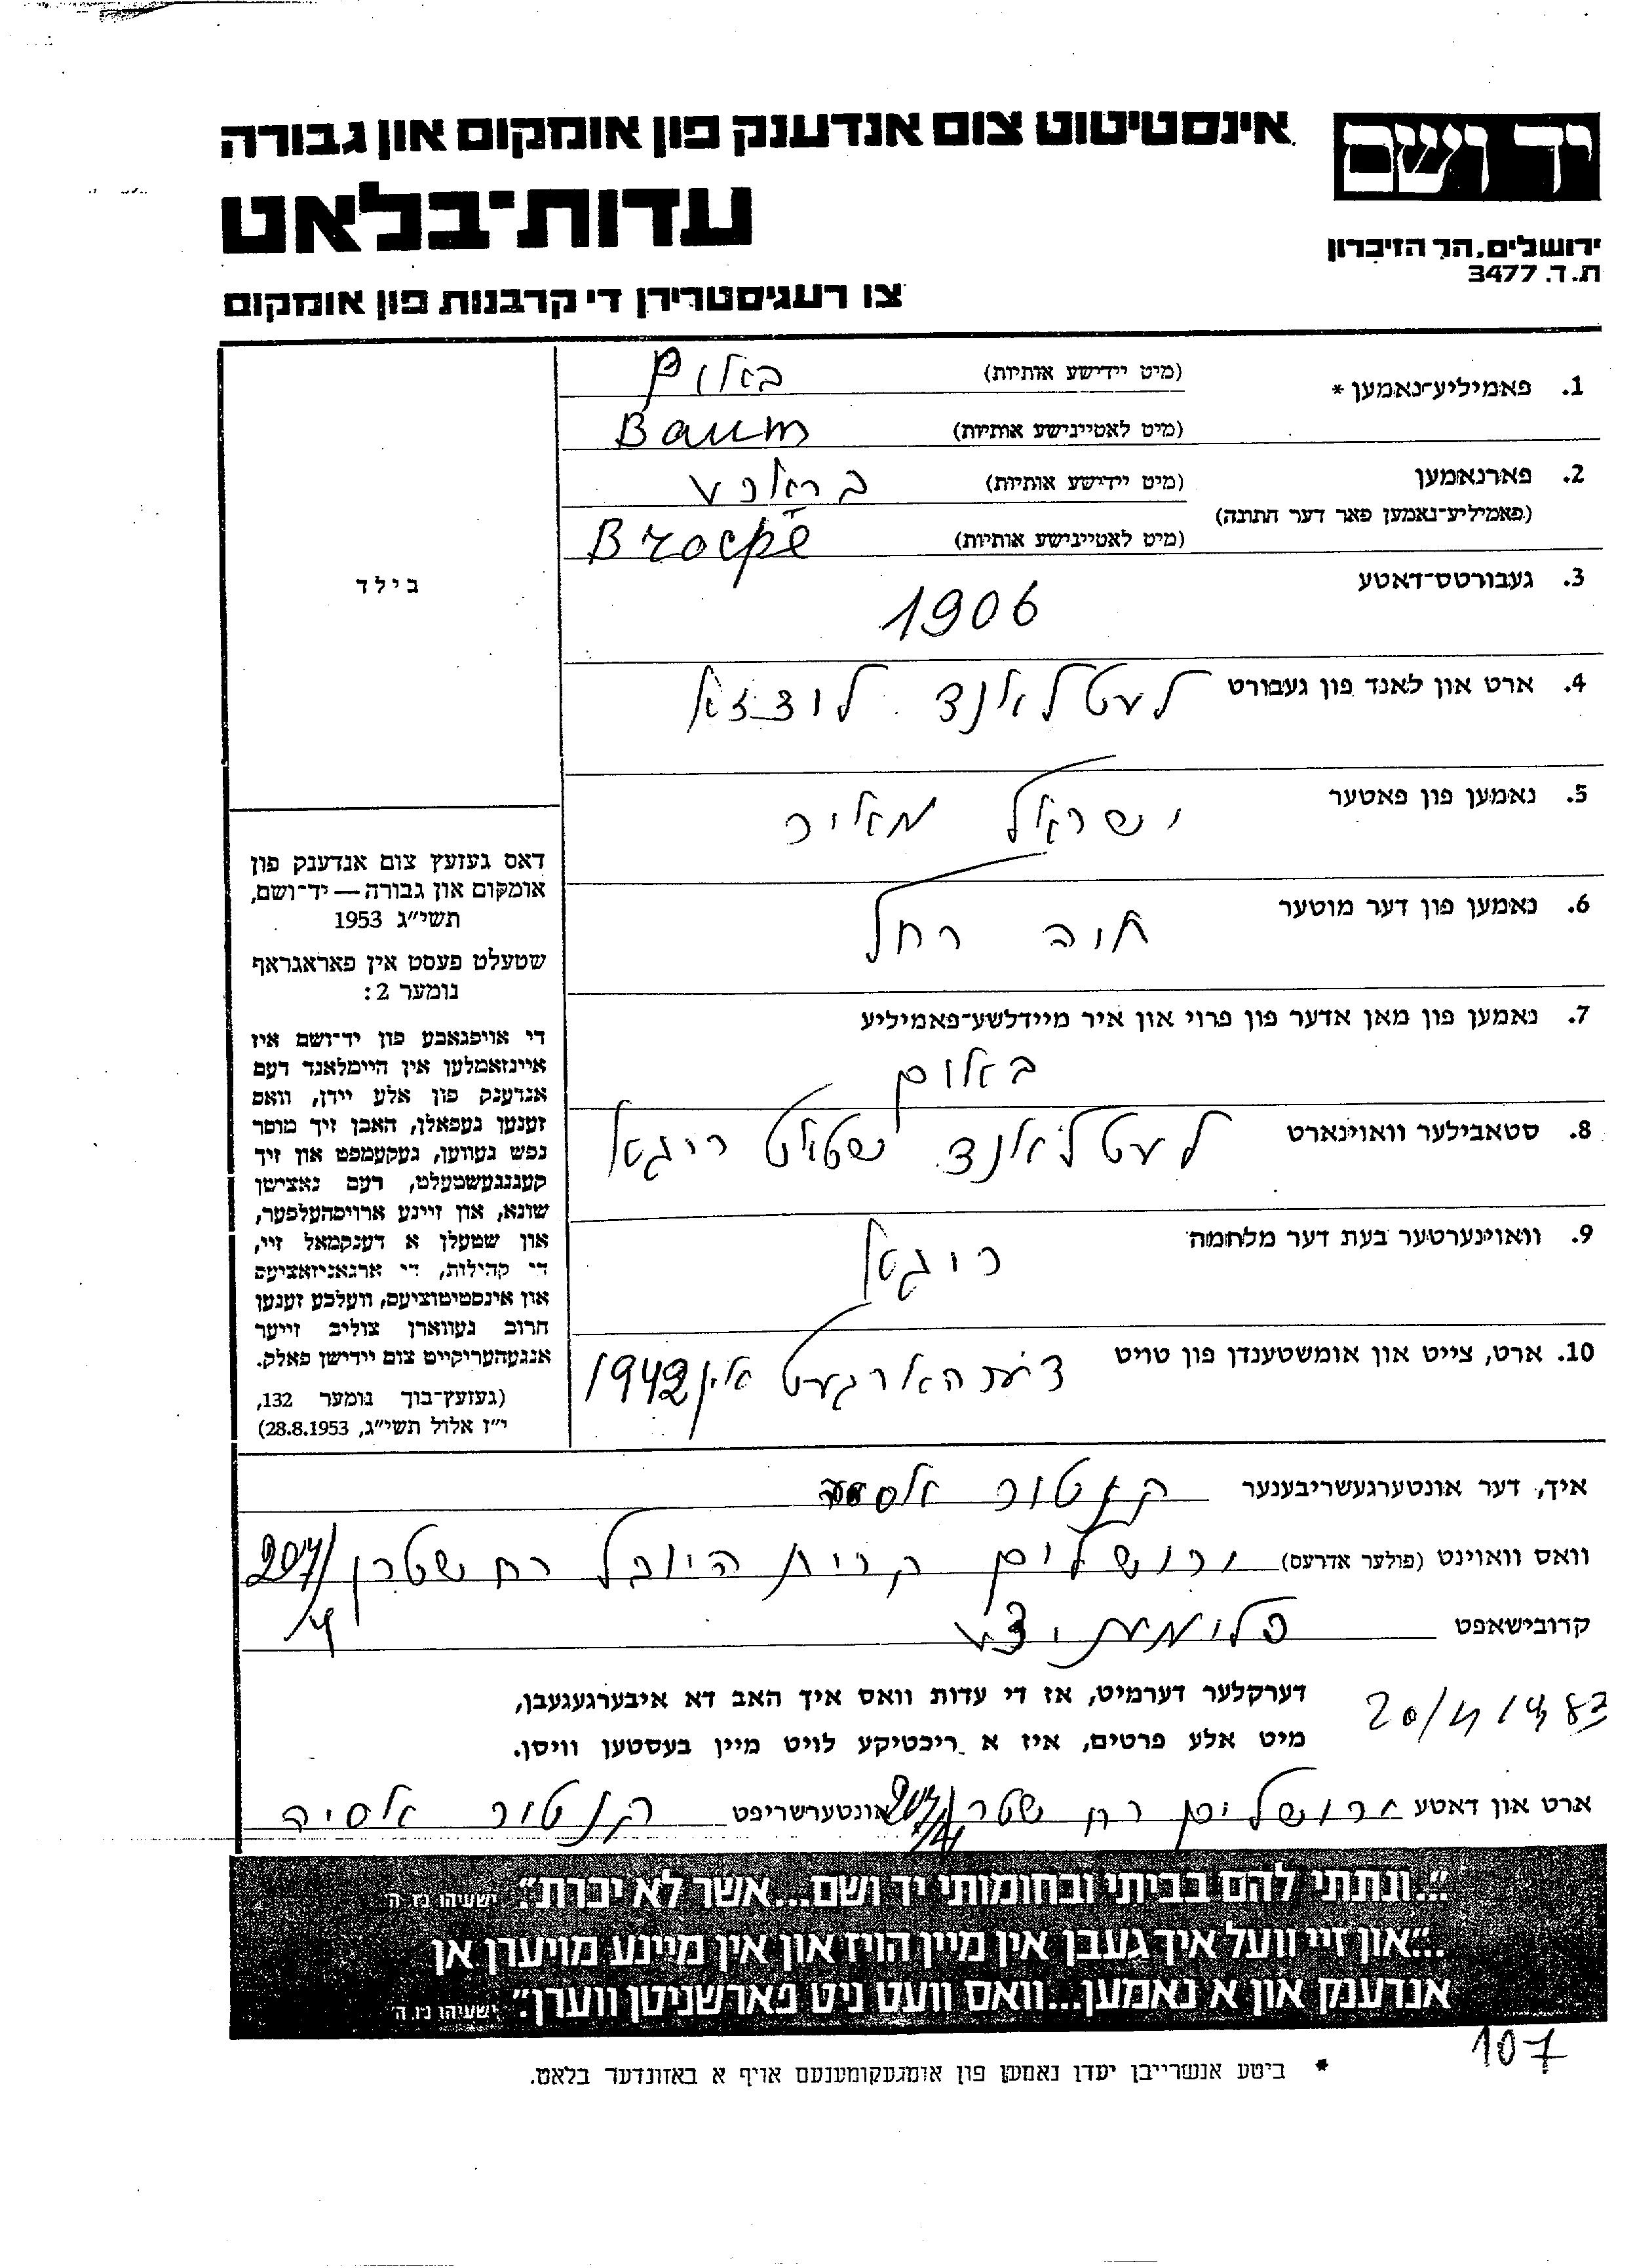 אינסטיטוט צום אנדענק פון אומקום און גבורה
יד ושם
עדות־בלאט
ירושלים, הר הזיכרון
ת.ד. 3477
צו רעגיסטרירן די קרבנות פון אומקום
1. פאמיליע־נאמען *
(מיט יידישע אותיות) באום
(מיט לאטיינישע אותיות) Baum
2. פארנאמען
(פאמיליע־נאמען פאר דער חתונה)
(מיט יידישע אותיות)
(מיט לאטיינישע אותיות)
3. געבורטס־דאטע
1906
4. ארט און לאנד פון געבורט לעטלאנד לודזא
5. נאמען פון פאטער
ישראל מאיר
6. נאמען פון דער מוטער
חוה רחל
7. נאמען פון מאן אדער פון פרוי און איר מיידלשע־פאמיליע
באום
8. סטאבילער וואוינארט לעטלאנד שטאט ריגא
9. וואוינערטער בעת דער מלחמה
ריגא
10. ארט, צייט און אומשטענדן פון טויט דערהארגעט אין 1942
בילד
דאס געזעץ צום אנדענק פון
אומקום און גבורה — יד־ושם,
תשי״ג 1953
שטעלט פעסט אין פאראגראף
נומער 2:
די אויפגאבע פון יד־ושם איז
איינזאמלען אין היימלאנד דעם
אנדענק פון אלע יידן, וואס
זענען געפאלן, האבן זיך מוסר
נפש געווען, געקעמפט און זיך
קעגנגעשטעלט, דעם נאצישן
שונא, און זיינע ארויסהעלפער,
און שטעלן א דענקמאל זיי,
די קהילות, די ארגאניזאציעס
און אינסטיטוציעס, וועלכע זענען
חרוב געווארן צוליב זייער
אנגעהעריקייט צום יידישן פאלק.
(געזעץ־בוך נומער 132,
י״ז אלול תשי״ג, 28.8.1953)
איך, דער אונטערגעשריבענער קנטור
וואס וואוינט (פולער אדרעס) ירושלים קרית היובל רח שטרן 207/
4
קרובישאפט פלימעניצע
דערקלער דערמיט, אז די עדות וואס איך האב דא איבערגעגעבן,
מיט אלע פרטים, איז א ריכטיקע לויט מיין בעסטען וויסן.
ארט און דאטע ירושלים רח שטרן 207/4 אונטערשריפט קנטור אסיה
"...ונתתי להם בביתי ובחומותי יד ושם...אשר לא יכרת". ישעיהו נו. ה.
..."און זיי וועל איך געבן אין מיין הויז און אין מיינע מויערן אן
אנדענק און א נאמען...וואס וועט ניט פארשניטן ווערן". ישעיהו נו. ה.
107
* ביטע אנשרייבן יעדן נאמען פון אומגעקומענעם אויף א באזונדער בלאט.